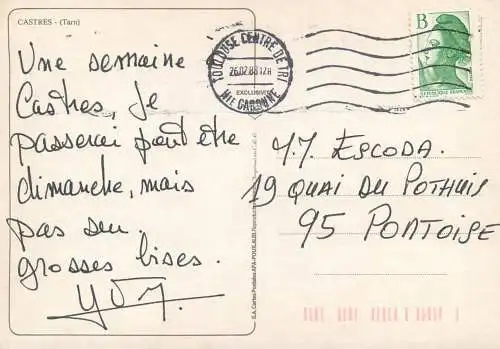 CASTRES - (Tarn)
Une semaine
Castres, Je
passerai peut être
dimanche, mais
pas sûr.
grosses bises.
TOULOUSE CENTRE DE TRI
26.02.88 12H
EXCLUSIVE
HTE GARONNE
B
REPUBLIQUE FRANÇAISE
M. ESCODA.
19 QUAI DU POTHUIS
95 PONTOISE